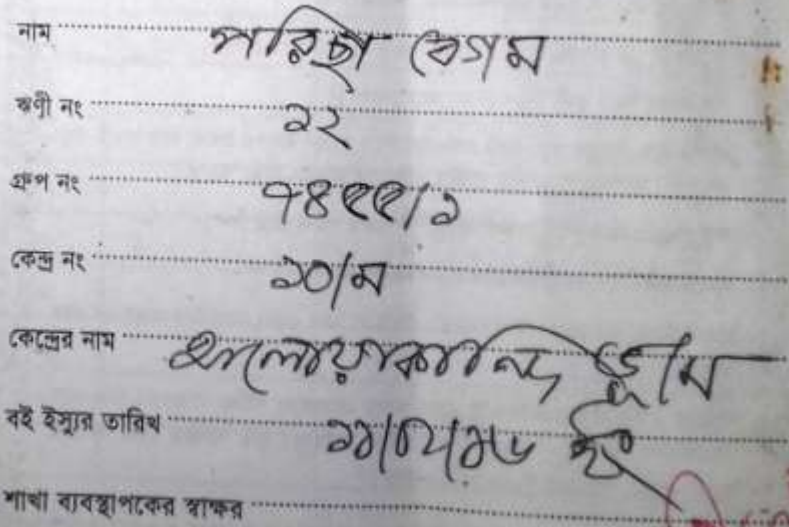 নাম পরিছা বেগম
ঋণী নং ১২
গ্রুপ নং ৭৪৫৫/১
কেন্দ্র নং ১০/ম
কেন্দ্রের নাম
বই ইস্যুর তারিখ ১১/০২/১৬ ইং
শাখা ব্যবস্থাপকের স্বাক্ষর